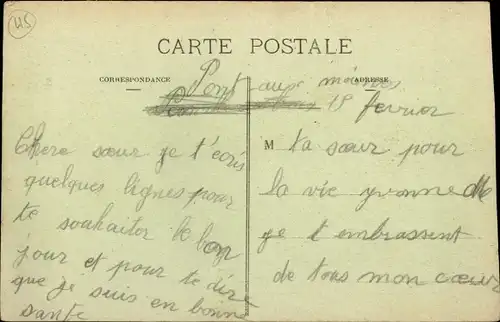 45
CARTE POSTALE
CORRESPONDANCE
ADRESSE
Pont aux moines
19 fevrier
Chere sœur je t'ecris
quelques lignes pour
te souhaiter le bon
jour et pour te dire
que je suis en bonne
sante
M
ta sœur pour
la vie yvonne
je t embrassent
de tous mon cœur